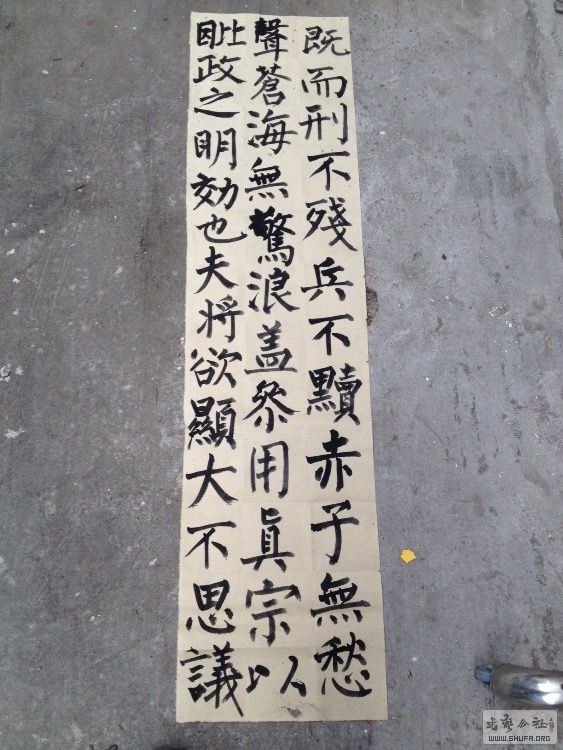 既而刑不殘兵不黷赤子無愁
聲蒼海無驚浪盖叅用眞宗以
毗政之明効也夫將欲顯大不思議
WWW.SHUFA.ORG